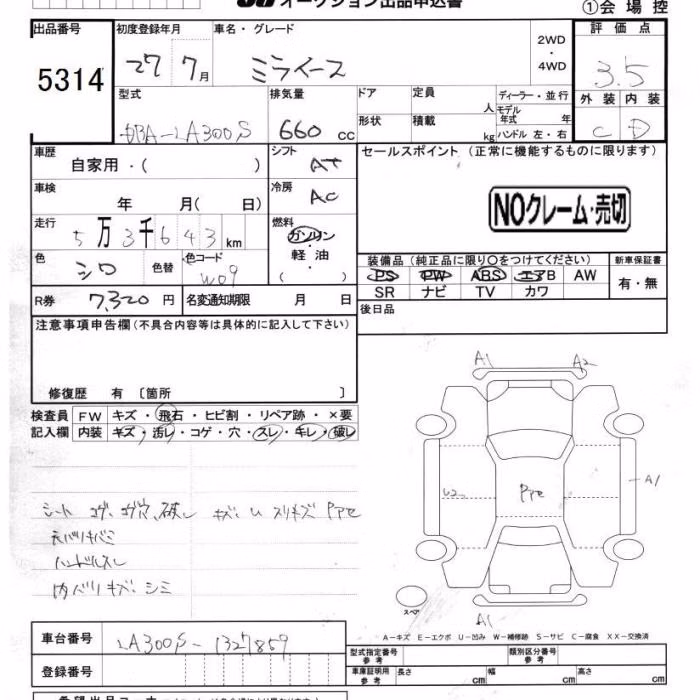 オークション出品申込書
①会場控
出品番号
5314
初度登録年月
27 7月
車名・グレード
ミライース
2WD
・
4WD
評価点
3.5
外装 内装
C D
型式
DBA-LA300S
排気量
660 cc
ドア
形状
定員 人
積載 kg
ディーラー・並行
モデル年式 年
ハンドル 左・右
車歴
自家用・( )
シフト
AT
セールスポイント(正常に機能するものに限ります)
NOクレーム・売切
車検
年 月( 日)
冷房
AC
走行
5万3千643km
燃料
ガソリン
・
軽油
( )
色
シロ
色替
色コード
W09
装備品(純正品に限り〇をつけてください)
PS PW ABS エアB AW
SR ナビ TV カワ
新車保証書
有・無
R券 7,320円
名変通知期限 月 日
後日品
注意事項申告欄(不具合内容等は具体的に記入して下さい)
修復歴 有〔箇所 〕
検査員記入欄
FW キズ・飛石・ヒビ割・リペア跡・×要
内装 キズ・汚レ・コゲ・穴・スレ・キレ・破レ
シート コゲ、コゲ穴、破レ キズ、U スリキズ
ハンドルスレ
内バリキズ、シミ
A1
A2
U2
A1
A1
スペア
A-キズ E-エクボ U-凹み W-補修跡 S-サビ C-腐食 XX-交換済
車台番号
LA300S-1327859
型式指定番号
参考
類別区分番号
参考
登録番号
車庫証明用
参考
長さ cm
幅 cm
高さ cm